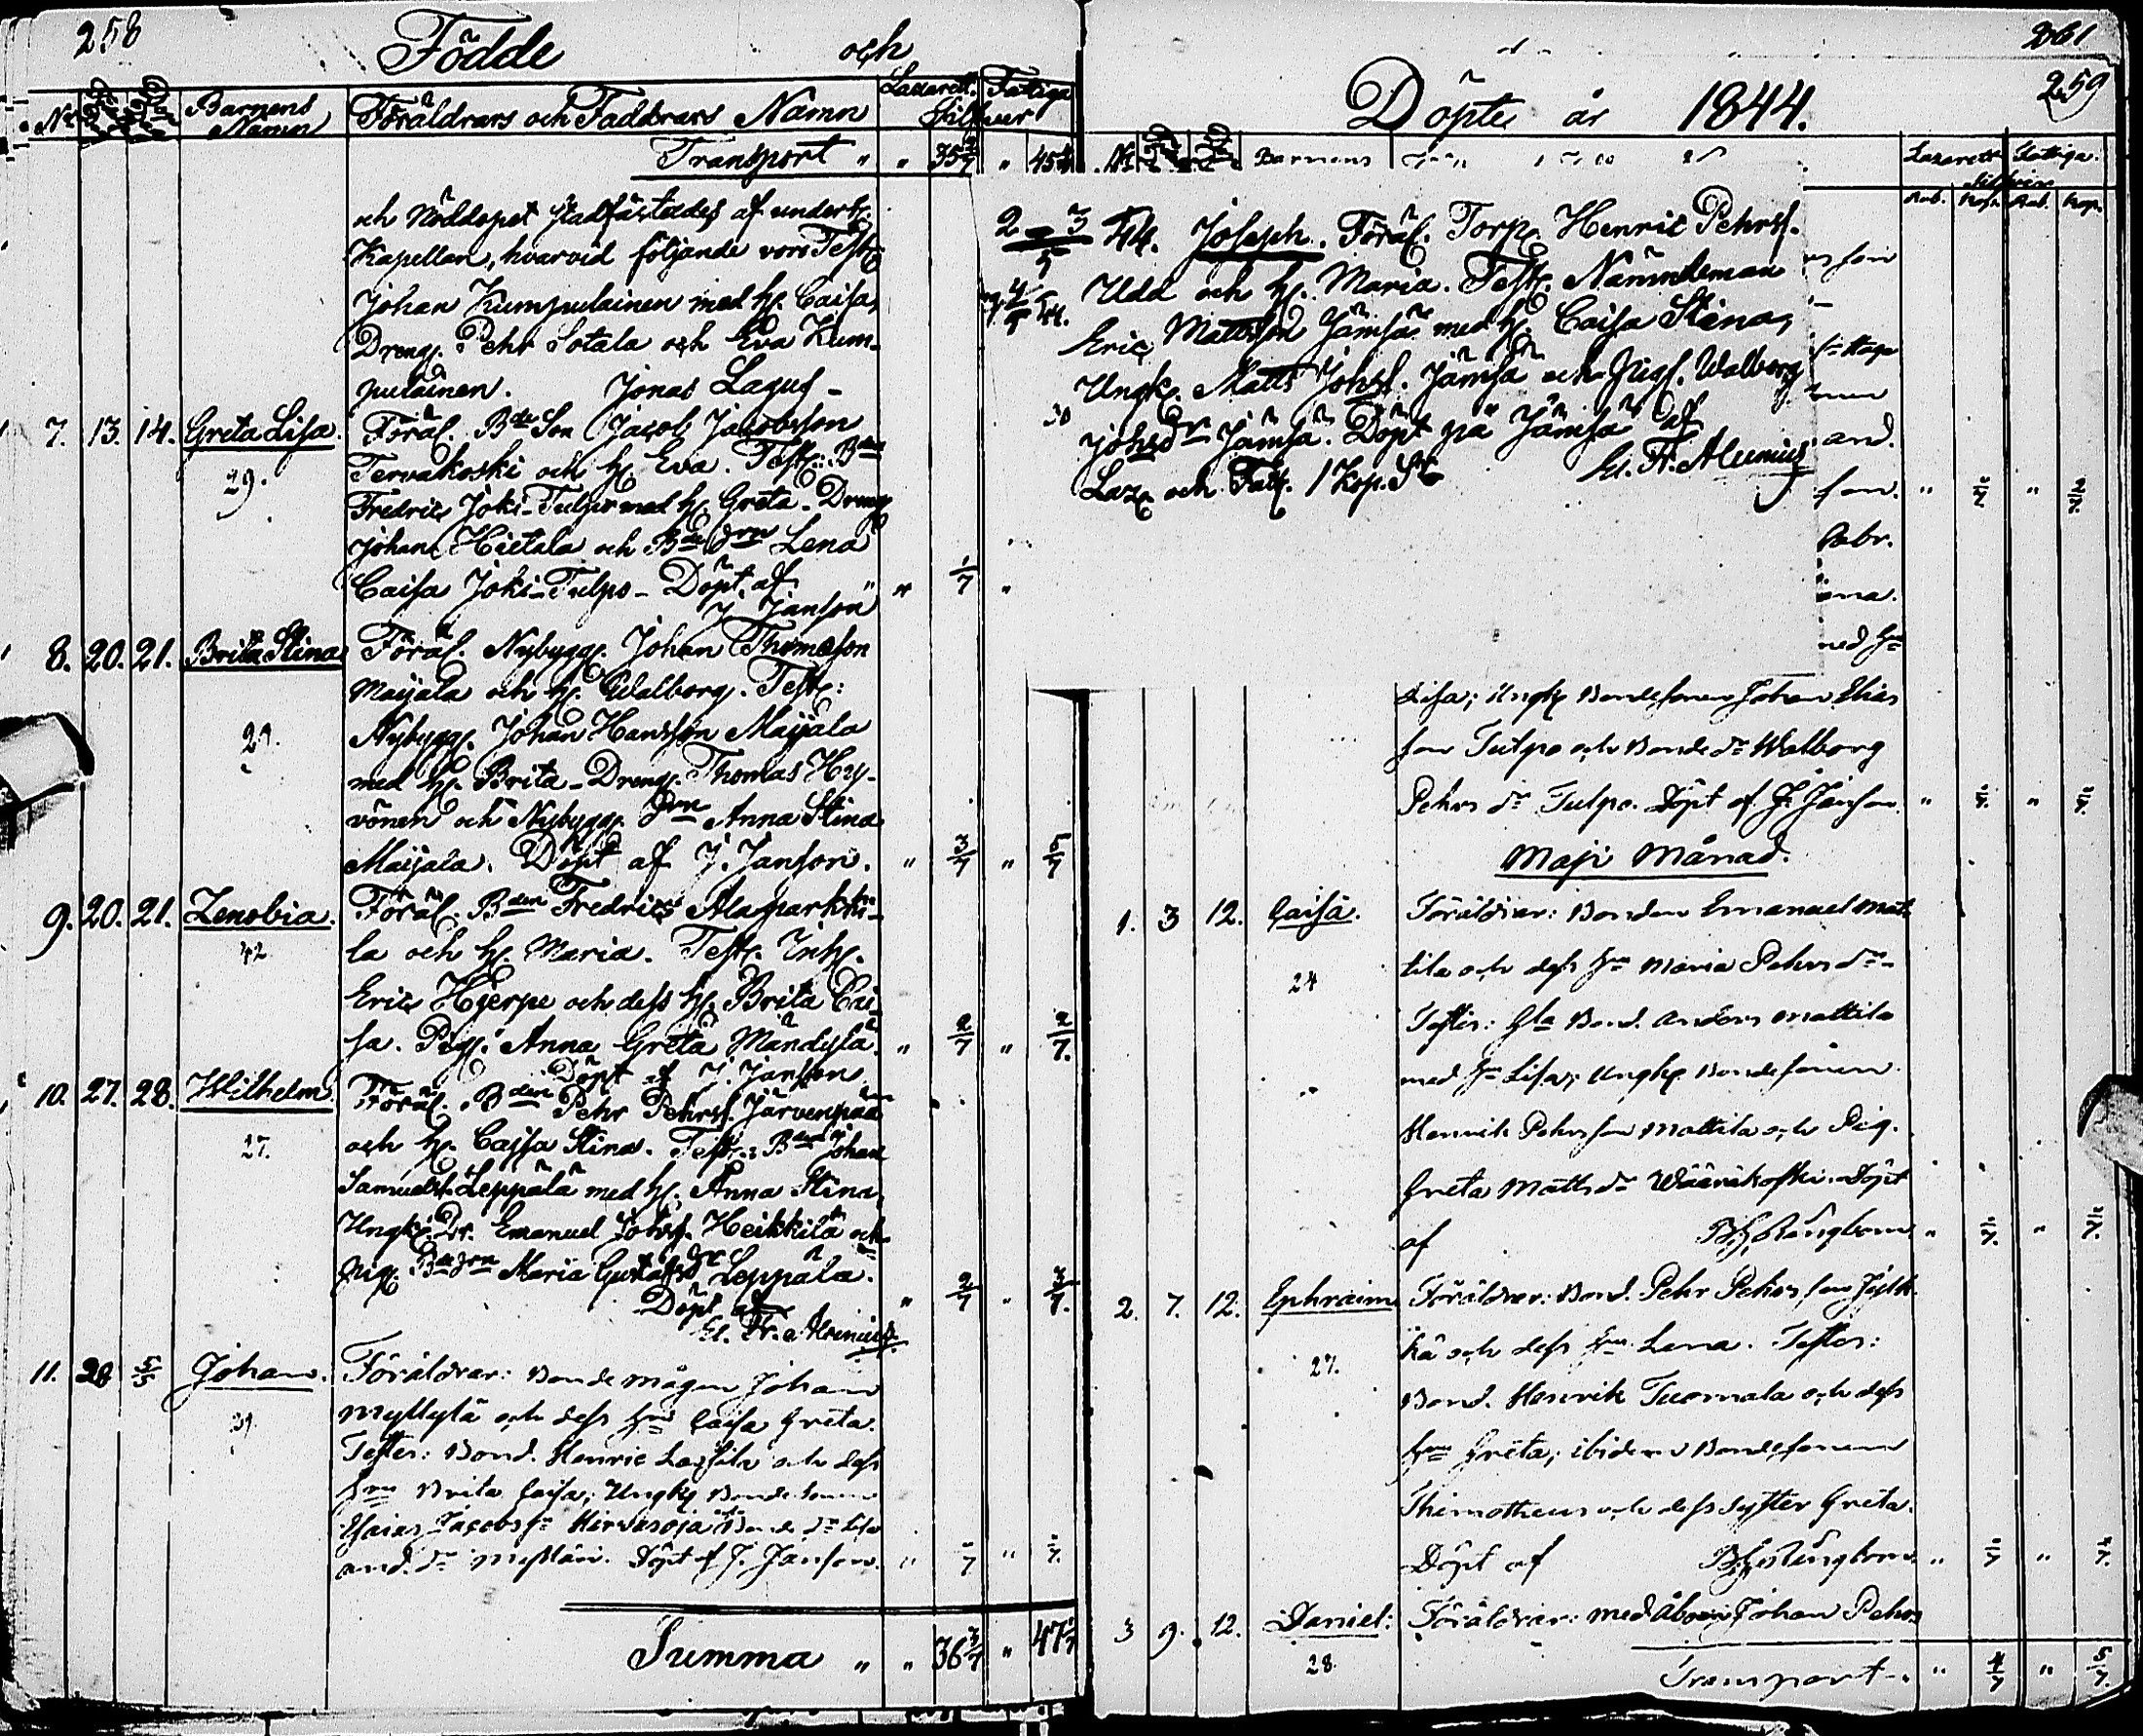 258
Födde och
No Barnens Namn Föräldrars och Faddrars Namn Lazarett. Fattiga
Silfver
Transport " " 35 2/7 " 45
och Nöddopet stadfästades af undert.
Kapellan, hvarvid följande voro Test:
Johan Kumpulainen med h. Caisa,
Dreng. Pehr Sotala och Eva Kum-
pulainen. Jonas Lagus -
7. 13. 14. Greta Lisa. Föräl. Bde Son Jacob Jakobsson
Tervakoski och h. Eva. Test: Bden
29.
Fredric Joki-Tulpo med h. Greta. Dreng
Johan Hietala och Bde drn Lena
Caisa Joki-Tulpo - Döpt af " " 1/7 "
J. Janson
8. 20. 21. Brita Stina Föräl. Nybygg. Johan Thomasson
Maijala och h. Walborg. Test:
29. Nybygg. Johan Hansson Maijala
med h. Brita - Dreng. Thomas Hy-
vönen och Nybygg. drn Anna Stina
Maijala. Döpt af J. Janson. " 3/7 " 5/7
9. 20. 21. Zenobia. Föräl. Bden Fredric Alaparkki-
42 la och h. Maria. Test. Inh.
Eric Hjerpe och dess h. Brita Cai-
sa. Pig. Anna Greta Mändylä. " 2/7 " 2/7.
Döpt af J. Janson
10. 27. 28. Wilhelm Föräl. Bden Pehr Pehrs. Järvenpää
27. och h. Cajsa Stina. Test: Bden Johan
Samuels. Leppälä med h. Anna Stina,
Ungk. Dr. Emanuel Johs. Heikkilä och
pig. Bde drn Maria Gustafs dr Leppälä. " 2/7 " 3/7.
Döpt af
El. Fr. Alcenius
11. 28 5/5 Johan. Föräldrar: Bonde mågen Johan
Myllylä och dess hru Caisa Greta.
Tester: Bond. Henric Lassila och dess
hru Brita Caisa; Ungk. Bondesonen
Esaias Jacobs sn Hirvasoja Bonde dr Lisa
And. dr Döpt af J. Janson. " /7 " /7.
Summa " " 36 3/7 " 47
261
259
Döpte år 1844.
No Barnens Lazarett Fattiga.
Silfver
Rub. Kop. Rub. Kop.
2 3/5 44. Joseph. Föräl. Torp. Henric Pehrs.
4/5 44. Udd och h. Maria. Test. Nämndeman
Eric Mattsson Jämsä med h. Caisa Stina,
Ungk. Matts Johss. Jämsä och pig. Walborg
30 Johsdr Jämsä. Döpt på Jämsä af
Laz. och Fatt. 1 Kop. St El. Fr. Alcenius
son
and.
son. " "
Gabr.
med hru
Lisa; Ungk. Bondesonen Johan Elias
son Tulpo och Bonde dr Walborg
Pehrs dr Tulpo. Döpt af J. Janson. " "
Maji Månad.
1. 3 12. Caisa. Föräldrar: Bonden Emanuel Mat-
tila och dess hru Maria Pehrs dr -
24 Tester: Gla Bond. Anders Mattila
med hru Lisa; Ungk. Bondesonen
Henrik Pehrsson Mattila och Pig.
Greta Matts dr Wäärikoski. Döpt
af " "
2. 7. 12. Ephraim Föräldrar: Bond. Pehr Pehrs son Jylk-
kä och dess hru Lena. Tester:
27. Bond. Henrik Tuomala och dess
hru Greta; ibidem Bondesonen
Thimotheus och dess syster Greta.
Döpt af " "
3 9. 12. Daniel: Föräldrar: Med Åboen Johan Pehrs
28.
Transport " 4/7 " 5/7.